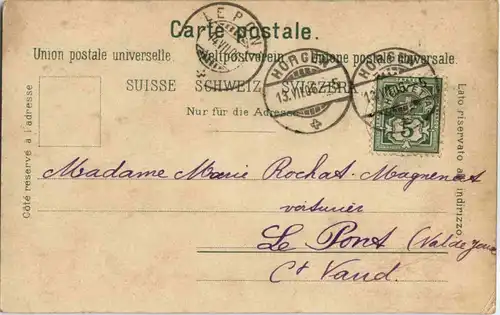 Carte postale.
Union postale universelle. Weltpostverein. Unione postale universale.
SUISSE SCHWEIZ SVIZZERA
Nur für die Adresse
Côté réservé à l'adresse
Lato riservato all' indirizzo
HORGEN
HORGEN
5
Madame Marie Rochat-Magnenat
voiturier
Le Pont (Val de Joux
Ct Vaud.